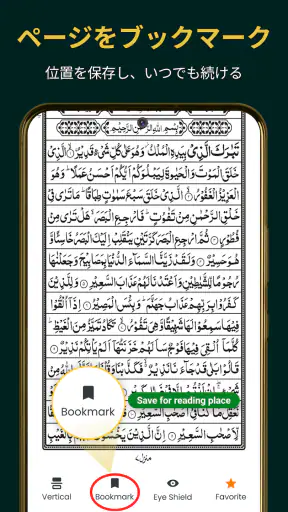 ページをブックマーク
位置を保存し、いつでも続ける
بِسْمِ اللّٰهِ الرَّحْمٰنِ الرَّحِیْمِ
تَبٰرَكَ الَّذِیْ بِیَدِهِ الْمُلْكُ وَهُوَ عَلٰی كُلِّ شَیْءٍ قَدِیْرُ ۝ الَّذِیْ
خَلَقَ الْمَوْتَ وَالْحَیٰوةَ لِیَبْلُوَكُمْ اَیُّكُمْ اَحْسَنُ عَمَلًا ؕ وَهُوَ
الْعَزِیْزُ الْغَفُوْرُ ۝ الَّذِیْ خَلَقَ سَبْعَ سَمٰوٰتٍ طِبَاقًا ؕ مَا تَرٰی فِیْ
خَلْقِ الرَّحْمٰنِ مِنْ تَفٰوُتٍ ؕ فَارْجِعِ الْبَصَرَ ۙ هَلْ تَرٰی مِنْ
فُطُوْرٍ ۝ ثُمَّ ارْجِعِ الْبَصَرَ كَرَّتَیْنِ یَنْقَلِبْ اِلَیْكَ الْبَصَرُ خَاسِئًا وَّهُوَ
حَسِیْرٌ ۝ وَلَقَدْ زَیَّنَّا السَّمَآءَ الدُّنْیَا بِمَصَابِیْحَ وَجَعَلْنٰهَا
رُجُوْمًا لِّلشَّیٰطِیْنِ وَاَعْتَدْنَا لَهُمْ عَذَابَ السَّعِیْرِ ۝ وَلِلَّذِیْنَ
كَفَرُوْا بِرَبِّهِمْ عَذَابُ جَهَنَّمَ ؕ وَبِئْسَ الْمَصِیْرُ ۝ اِذَاۤ اُلْقُوْا
فِیْهَا سَمِعُوْا لَهَا شَهِیْقًا وَّهِیَ تَفُوْرُ ۝ تَكَادُ تَمَیَّزُ مِنَ الْغَیْظِ ؕ
كُلَّمَاۤ اُلْقِیَ فِیْهَا فَوْجٌ سَاَلَهُمْ خَزَنَتُهَاۤ اَلَمْ یَاْتِكُمْ نَذِیْرٌ ۝
قَدْ جَآءَنَا نَذِیْرٌ ۙ فَكَذَّبْنَا
Bookmark
Save for reading place
السَّعِیْرِ ۝
لِّاَصْحٰبِ السَّعِیْرِ ۝ اِنَّ الَّذِیْنَ یَخْشَوْنَ رَبَّهُمْ بِالْغَیْبِ
منزل٧
Vertical
Bookmark
Eye Shield
Favorite